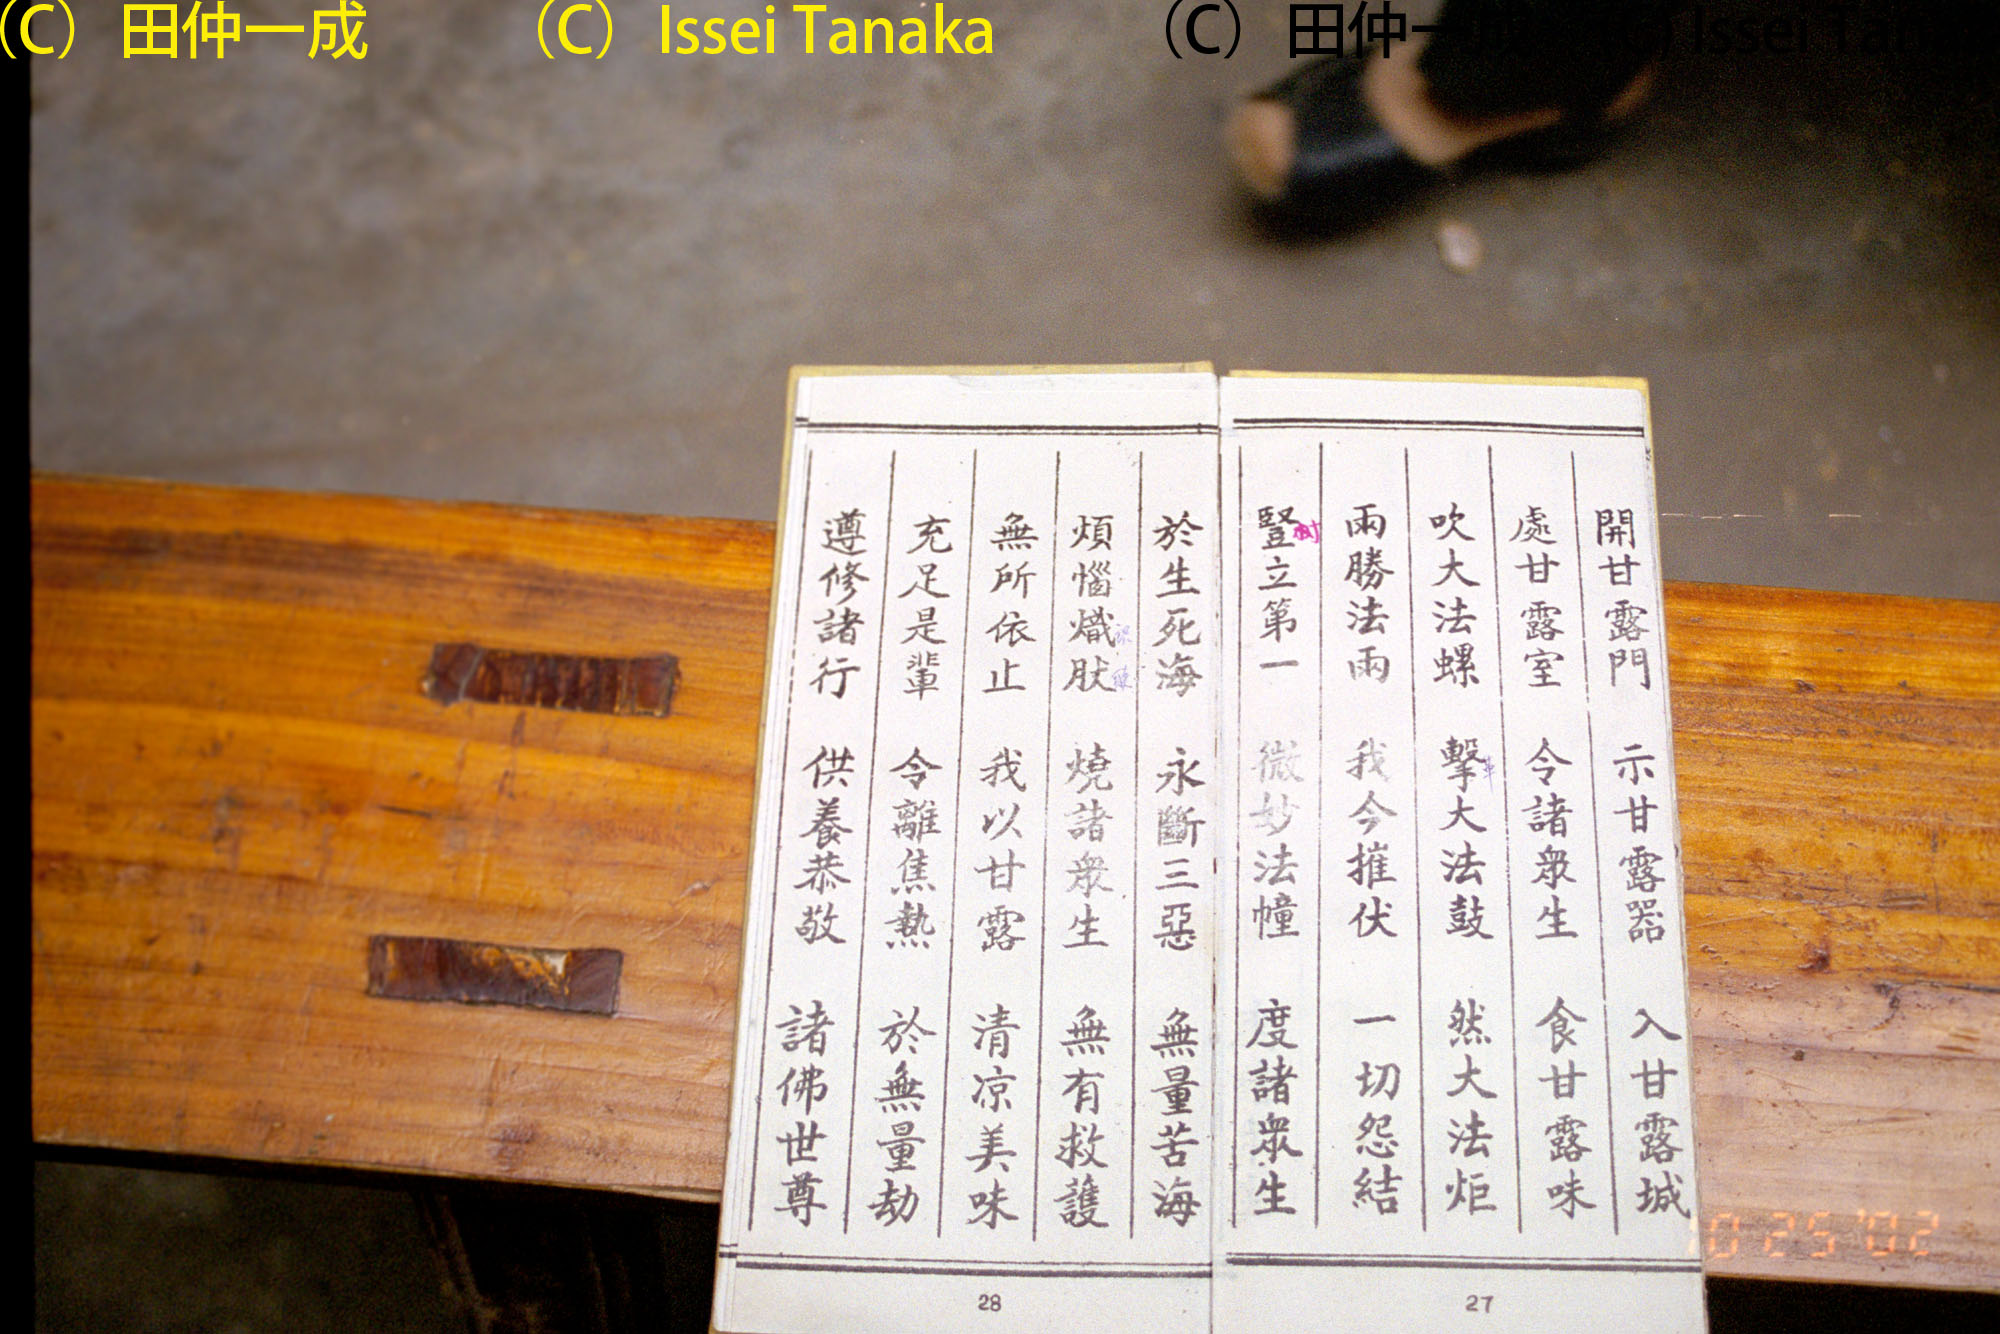 （C）田仲一成 （C）Issei Tanaka （C）田仲一成
開甘露門 示甘露器 入甘露城
處甘露室 令諸衆生 食甘露味
吹大法螺 擊大法鼓 然大法炬
雨勝法雨 我今摧伏 一切怨結
豎立第一 微妙法幢 度諸衆生
樹
27
於生死海 永斷三惡 無量苦海
煩惱熾肰 燒諸衆生 無有救護
無所依止 我以甘露 清凉美味
充足是輩 令離焦熱 於無量劫
遵修諸行 供養恭敬 諸佛世尊
28
10 25 '02